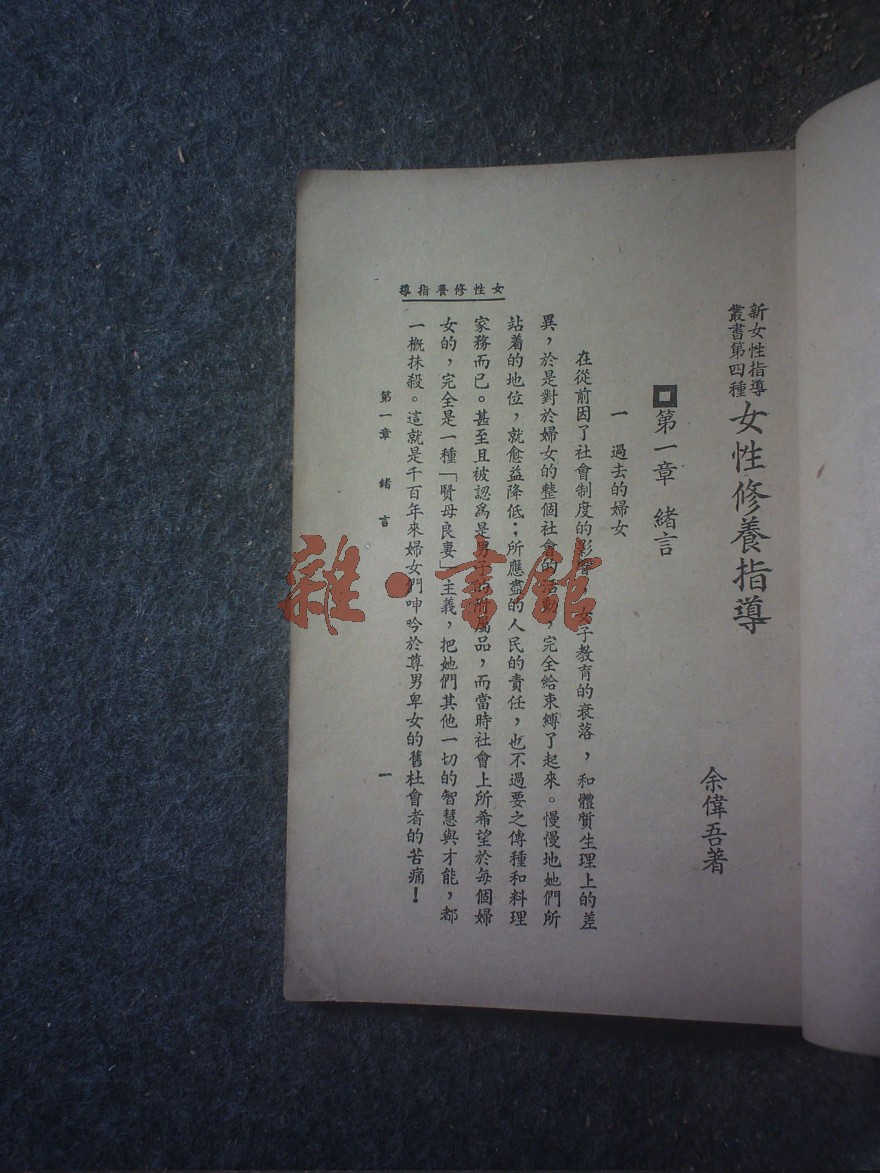 新女性指導
叢書第四種
女性修養指導
余偉吾著
第一章 緒言
一 過去的婦女
在從前因了社會制度的影響，女子教育的衰落，和體質生理上的差
異，於是對於婦女的整個社會的活動，完全給束縛了起來。慢慢地她們所
站着的地位，就愈益降低；所應盡的人民的責任，也不過要之傳種和料理
家務而已。甚至且被認爲是男子的附屬品，而當時社會上所希望於每個婦
女的，完全是一種「賢母良妻」主義，把她們其他一切的智慧與才能，都
一概抹殺。這就是千百年來婦女們呻吟於尊男卑女的舊社會者的苦痛！
女性修養指導
第一章 緒言
一
雜·書館